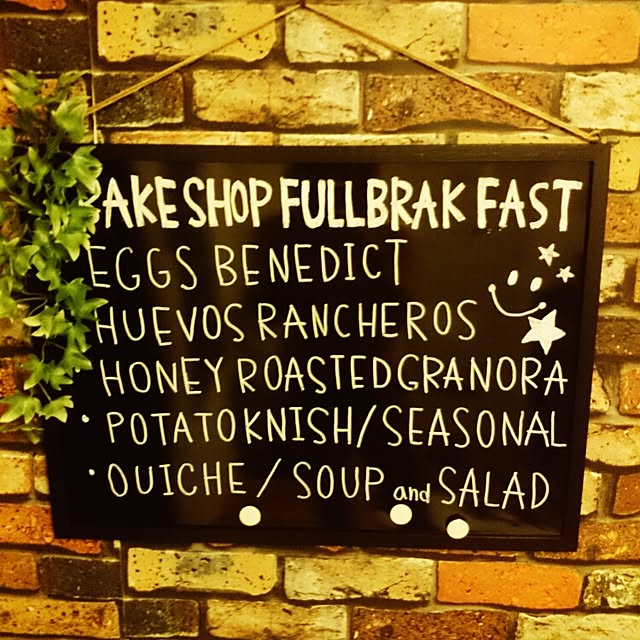 BAKESHOP FULLBRAK FAST
EGGS BENEDICT
HUEVOS RANCHEROS
HONEY ROASTED GRANORA
· POTATO KNISH / SEASONAL
· OUICHE / SOUP and SALAD